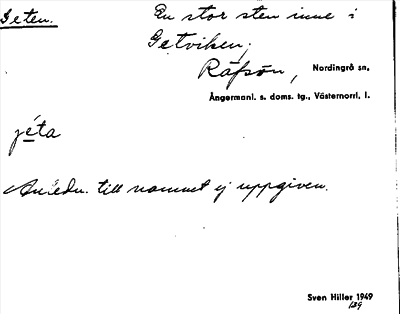 Geten.
En stor sten inne i
Getviken,
Räfsön, Nordingrå sn,
Ångermanl. s. doms. tg., Västernorrl. l.
jéta
Anledn. till namnet ej uppgiven.
Sven Hiller 1949